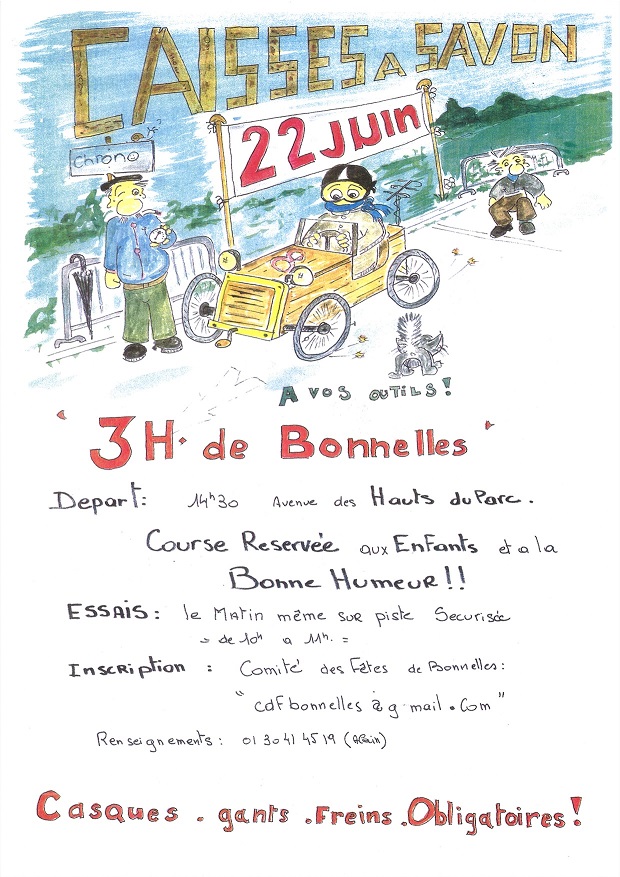 CAISSES A SAVON
22 JUIN
chrono
A VOS OUTILS!
"3H. de Bonnelles"
Depart: 14h30 Avenue des Hauts du Parc.
Course Reservée aux Enfants et a la
Bonne Humeur!!
ESSAIS: le Matin même sur piste Securisée
= de 10h a 11h. =
Inscription : Comité des Fêtes de Bonnelles:
"cdfbonnelles à g.mail.com"
Renseignements: 01 30 41 45 19 (Alain)
Casques. gants. Freins. Obligatoires!